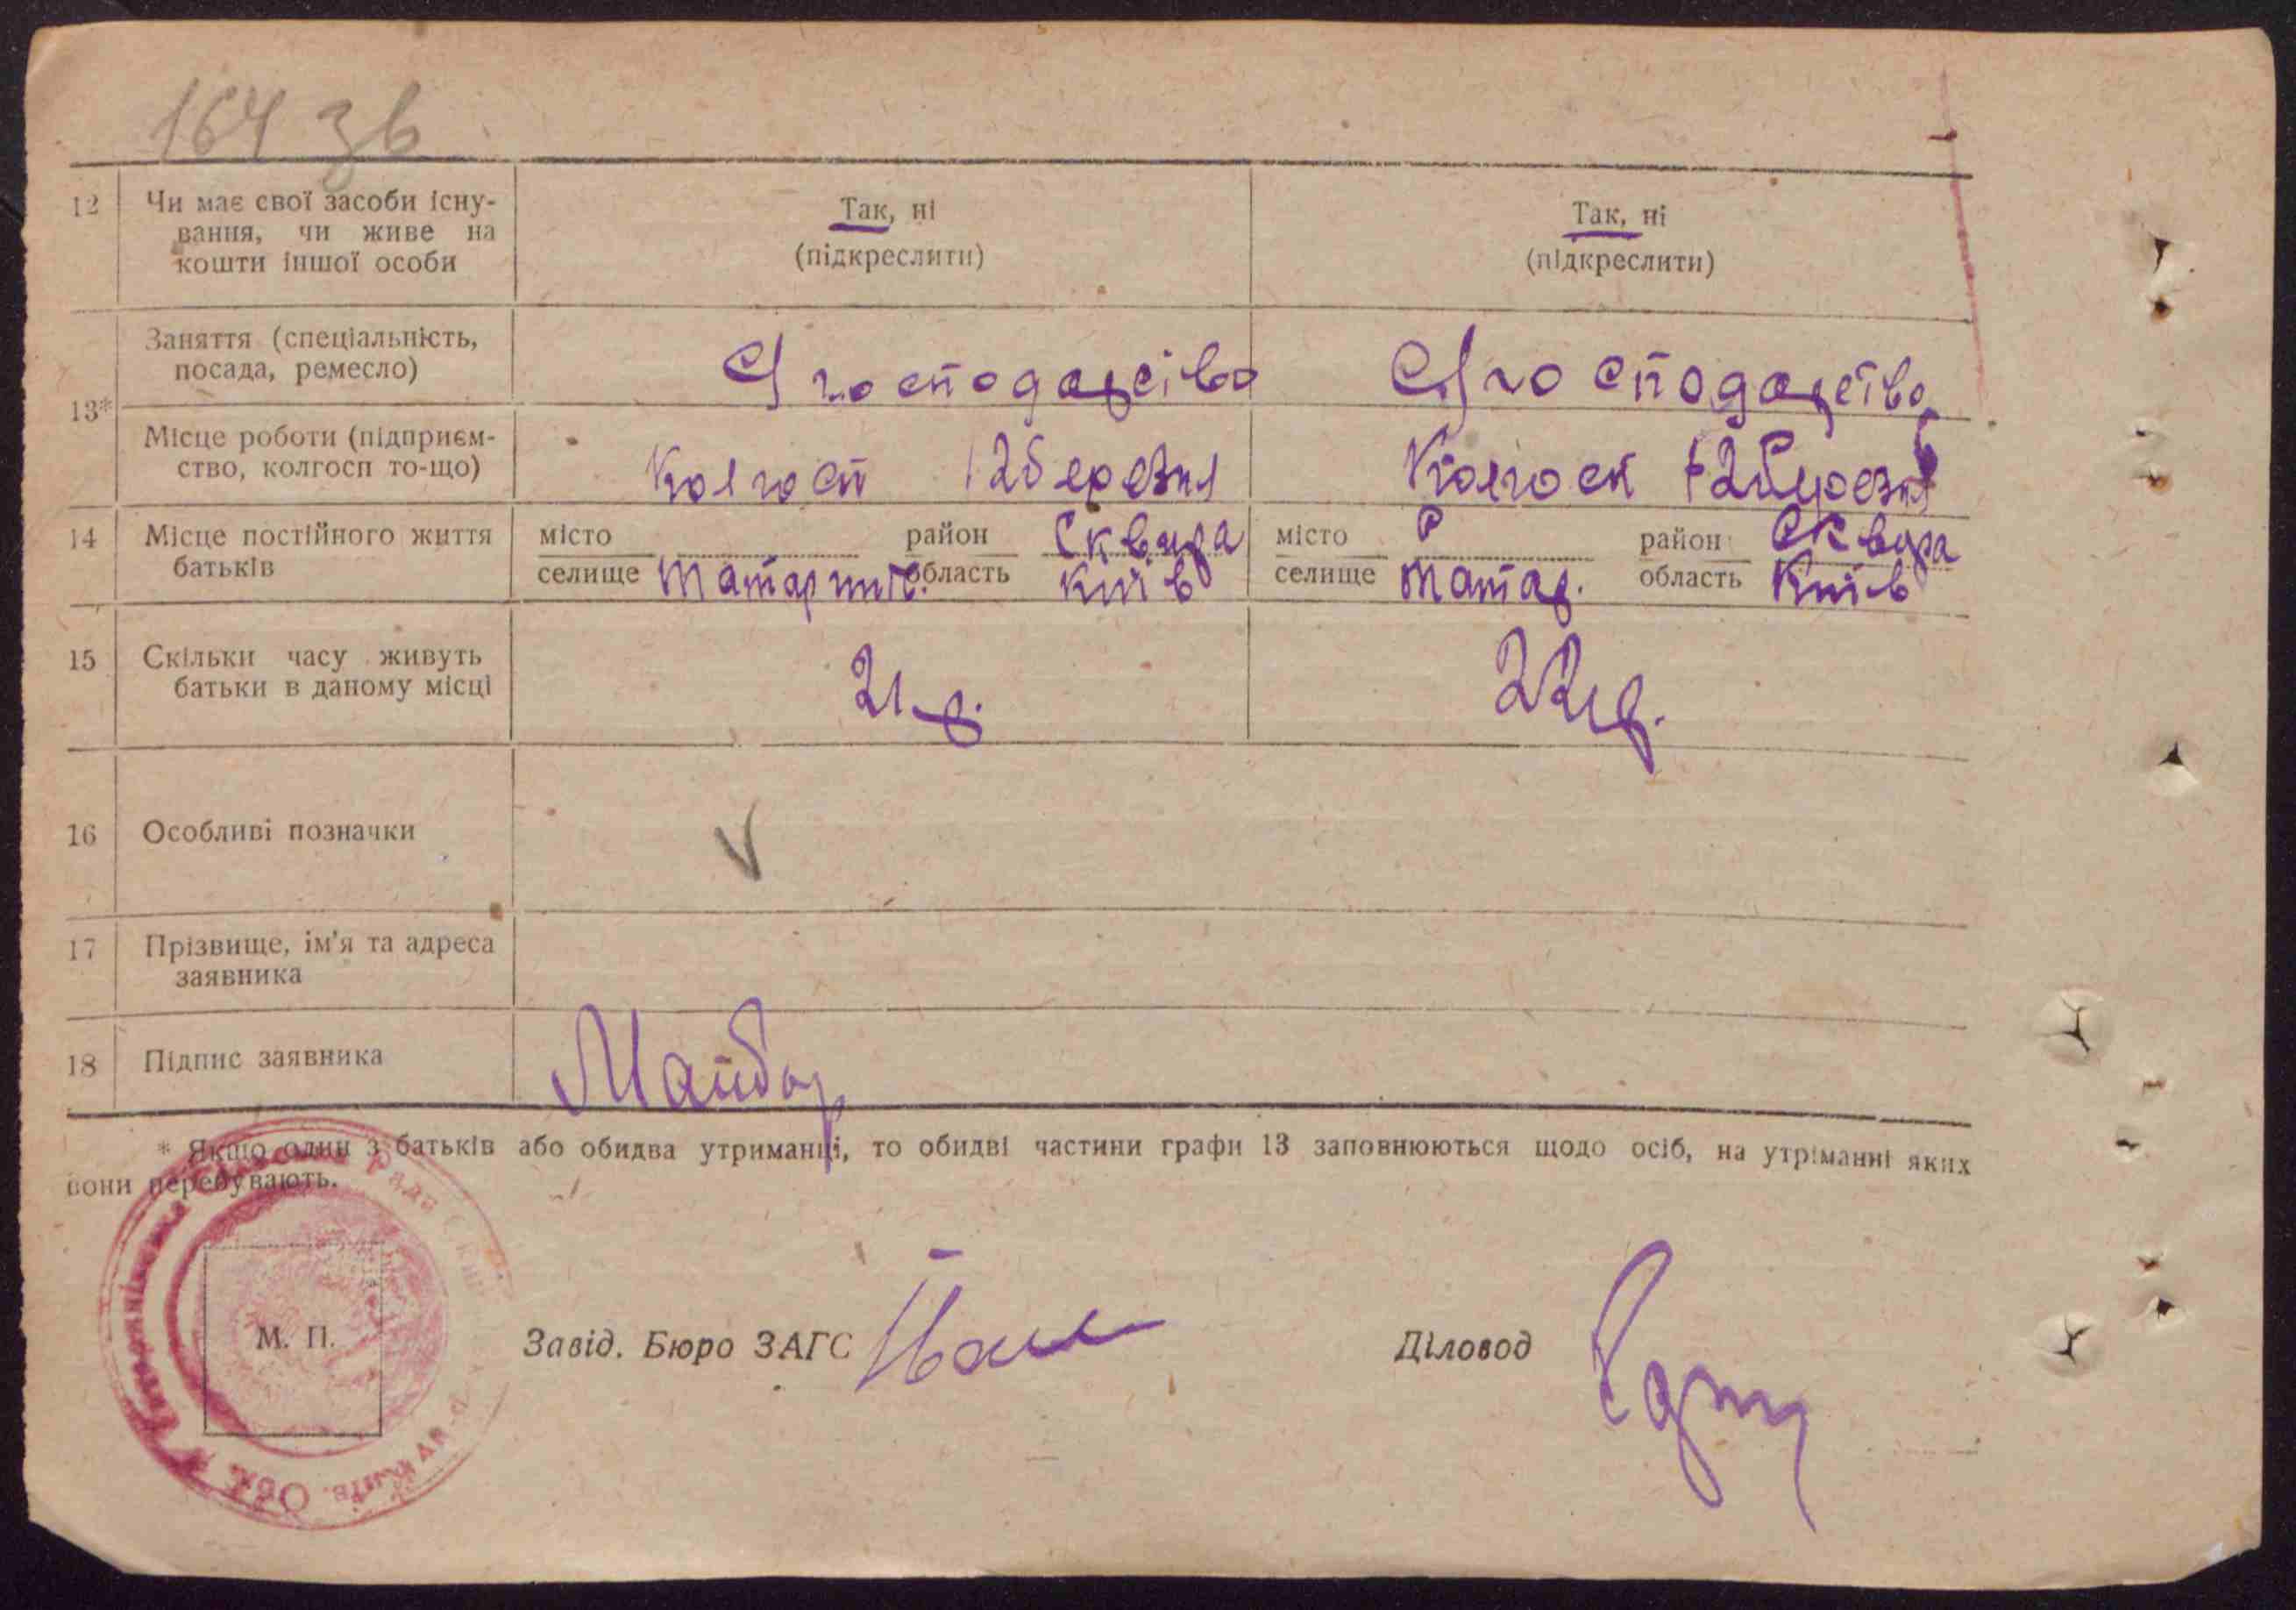 164 зв
12 Чи має свої засоби існу-
вання, чи живе на
кошти іншої особи
Так, ні
(підкреслити)
Так, ні
(підкреслити)
13*
Заняття (спеціальність,
посада, ремесло)
С/господарство
С/господарство
Місце роботи (підприєм-
ство, колгосп то-що)
Колгосп 12 березня
Колгосп 12 березня
14 Місце постійного життя
батьків
місто район Сквира
селище Татаринів. область Київ
місто район Сквира
селище Татар. область Київ
15 Скільки часу живуть
батьки в даному місці
21 р.
22 р.
16 Особливі позначки
17 Прізвище, ім'я та адреса
заявника
18 Підпис заявника
* Якщо один з батьків або обидва утриманці, то обидві частини графи 13 заповнюються щодо осіб, на утріманні яких
вони перебувають.
М. П.
Завід. Бюро ЗАГС
Діловод